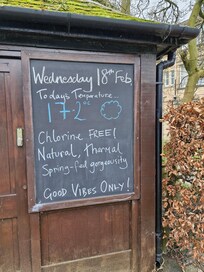 Wednesday 18th Feb.
Today's Temperature...
17.2°C
Chlorine FREE!
Natural, thermal
Spring-fed gorgeousity
GOOD VIBES ONLY!